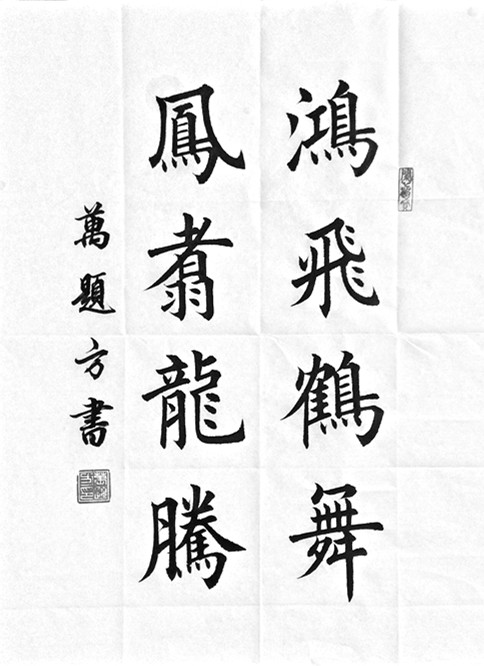 鴻飛鶴舞
鳳翥龍騰
萬題方書